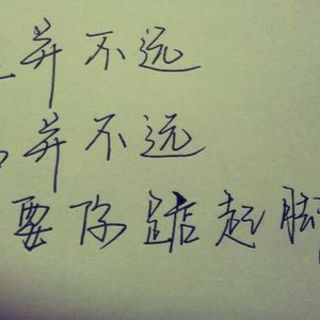 并不远
并不远
要你踮起脚